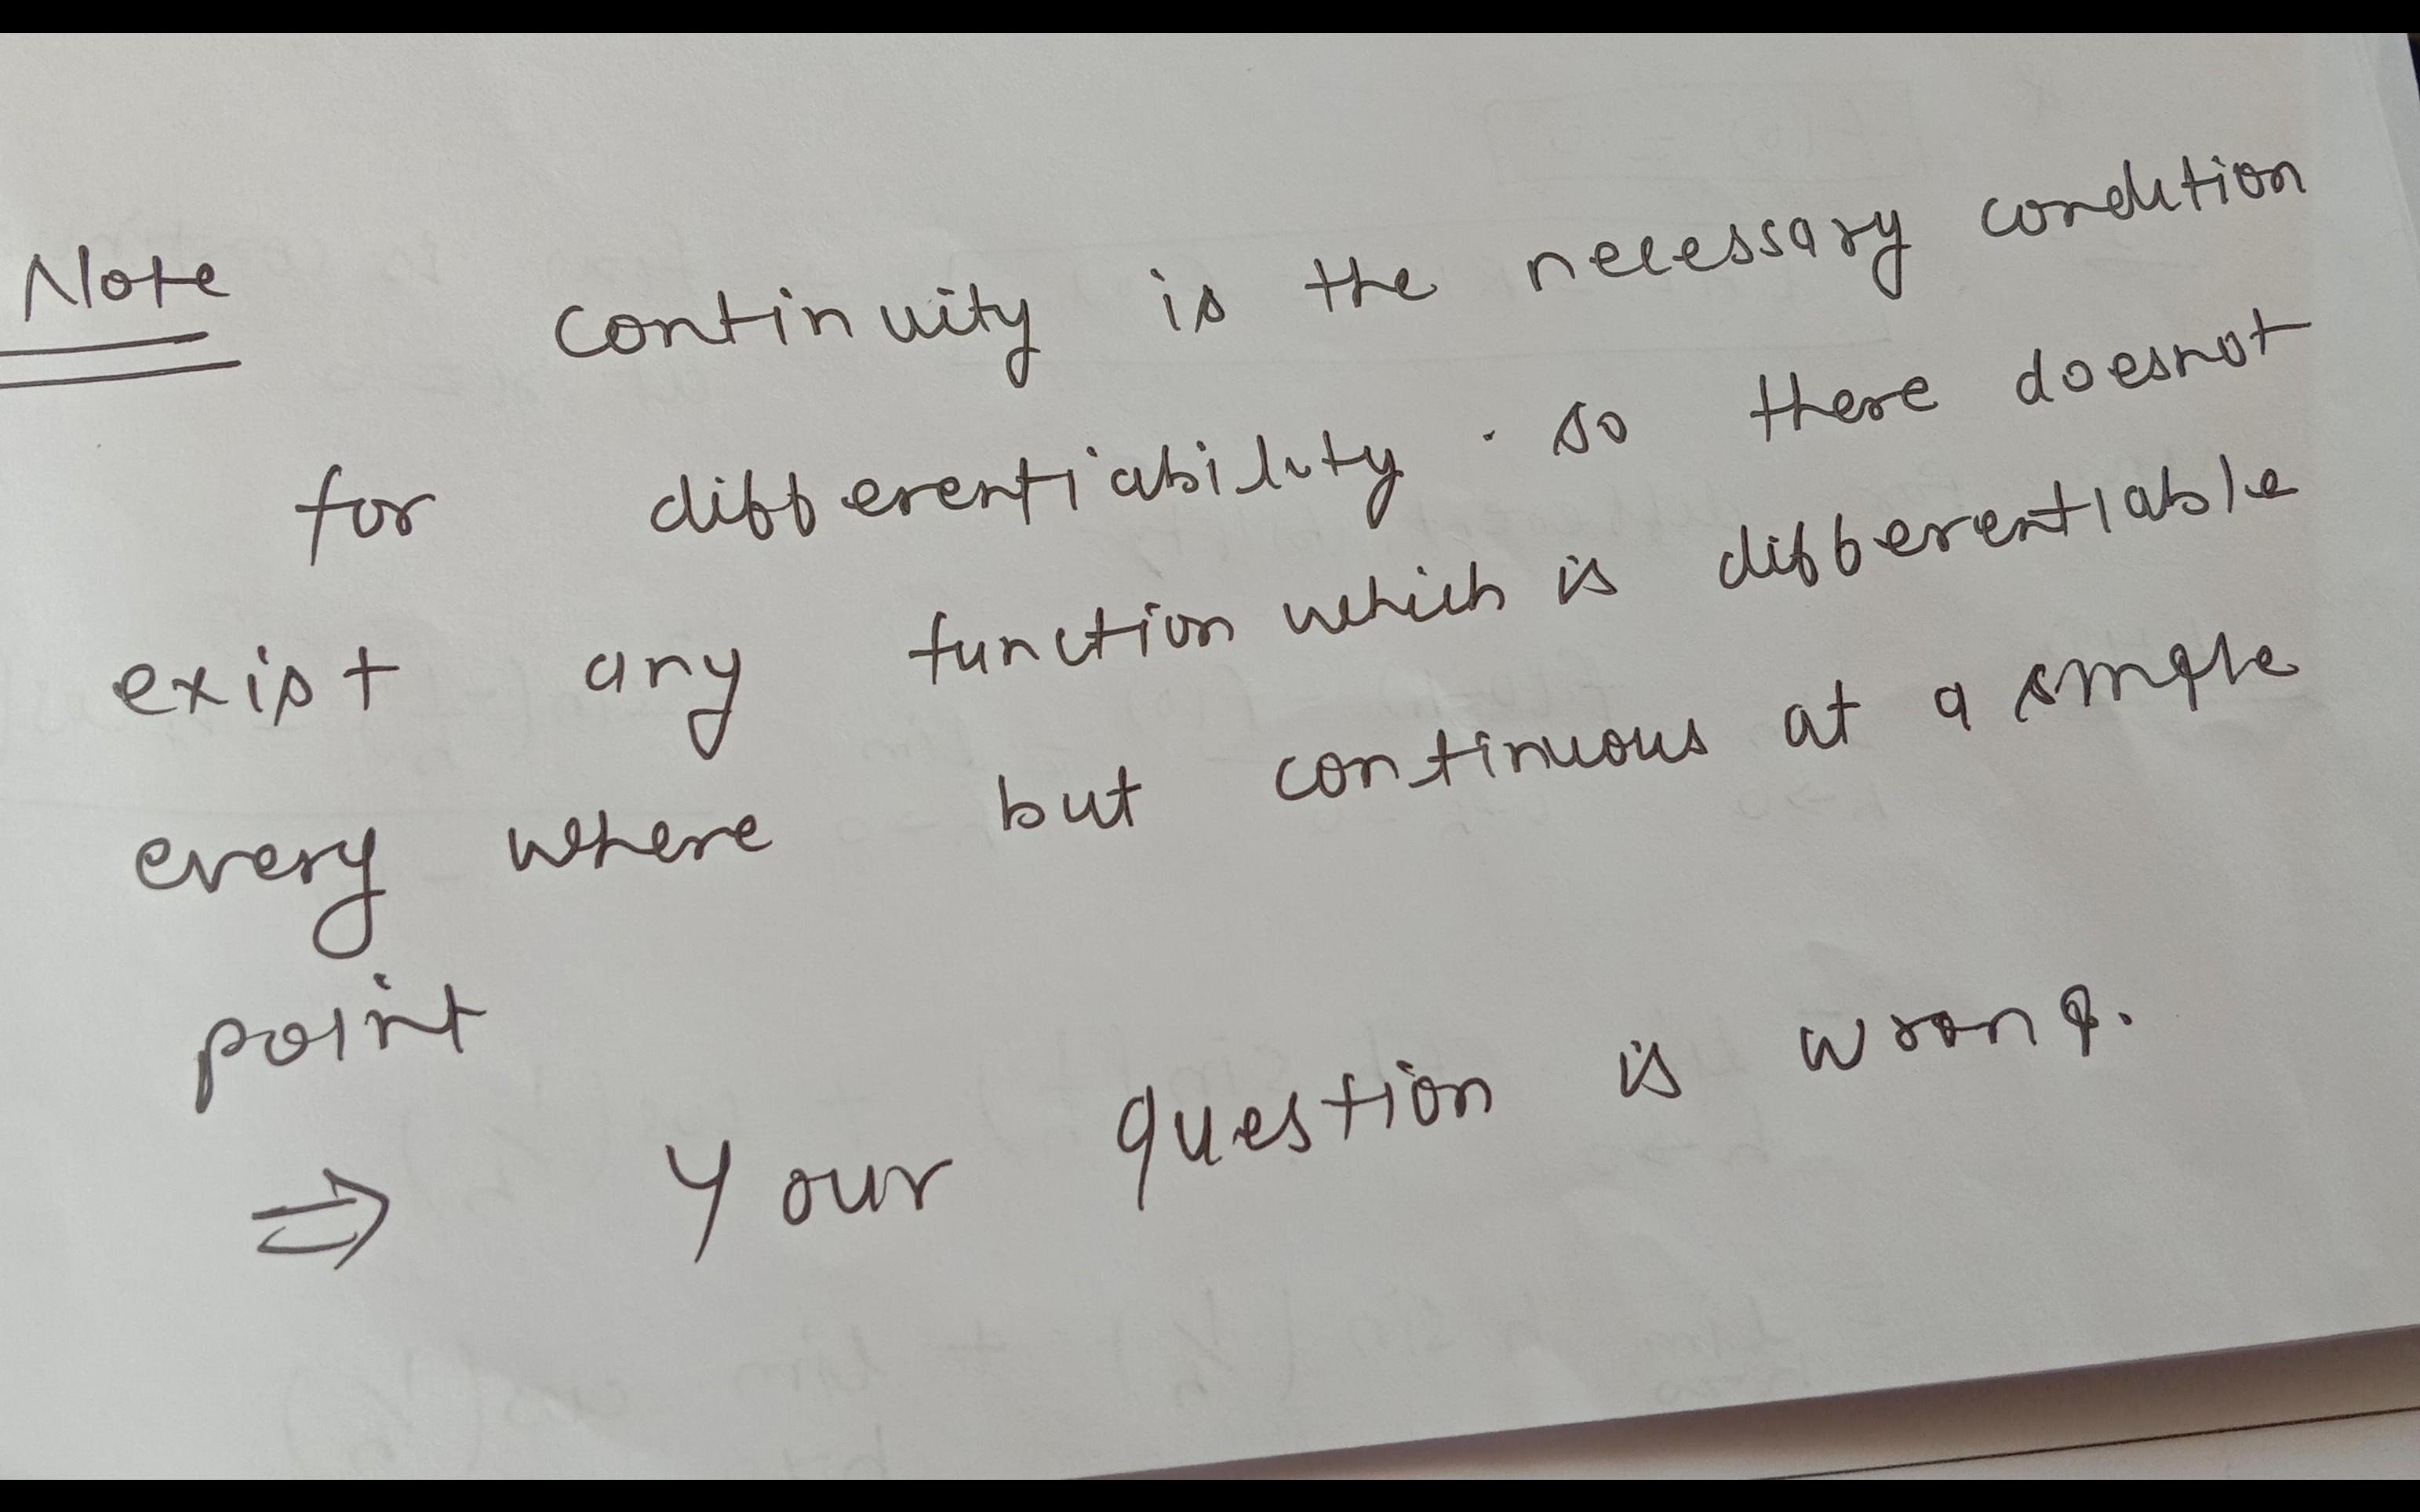 Note continuity is the necessary condition
for differentiability. so there doesnot
exist any function which is differentiable
every where but continuous at a single
point
⇒ Your question is wrong.